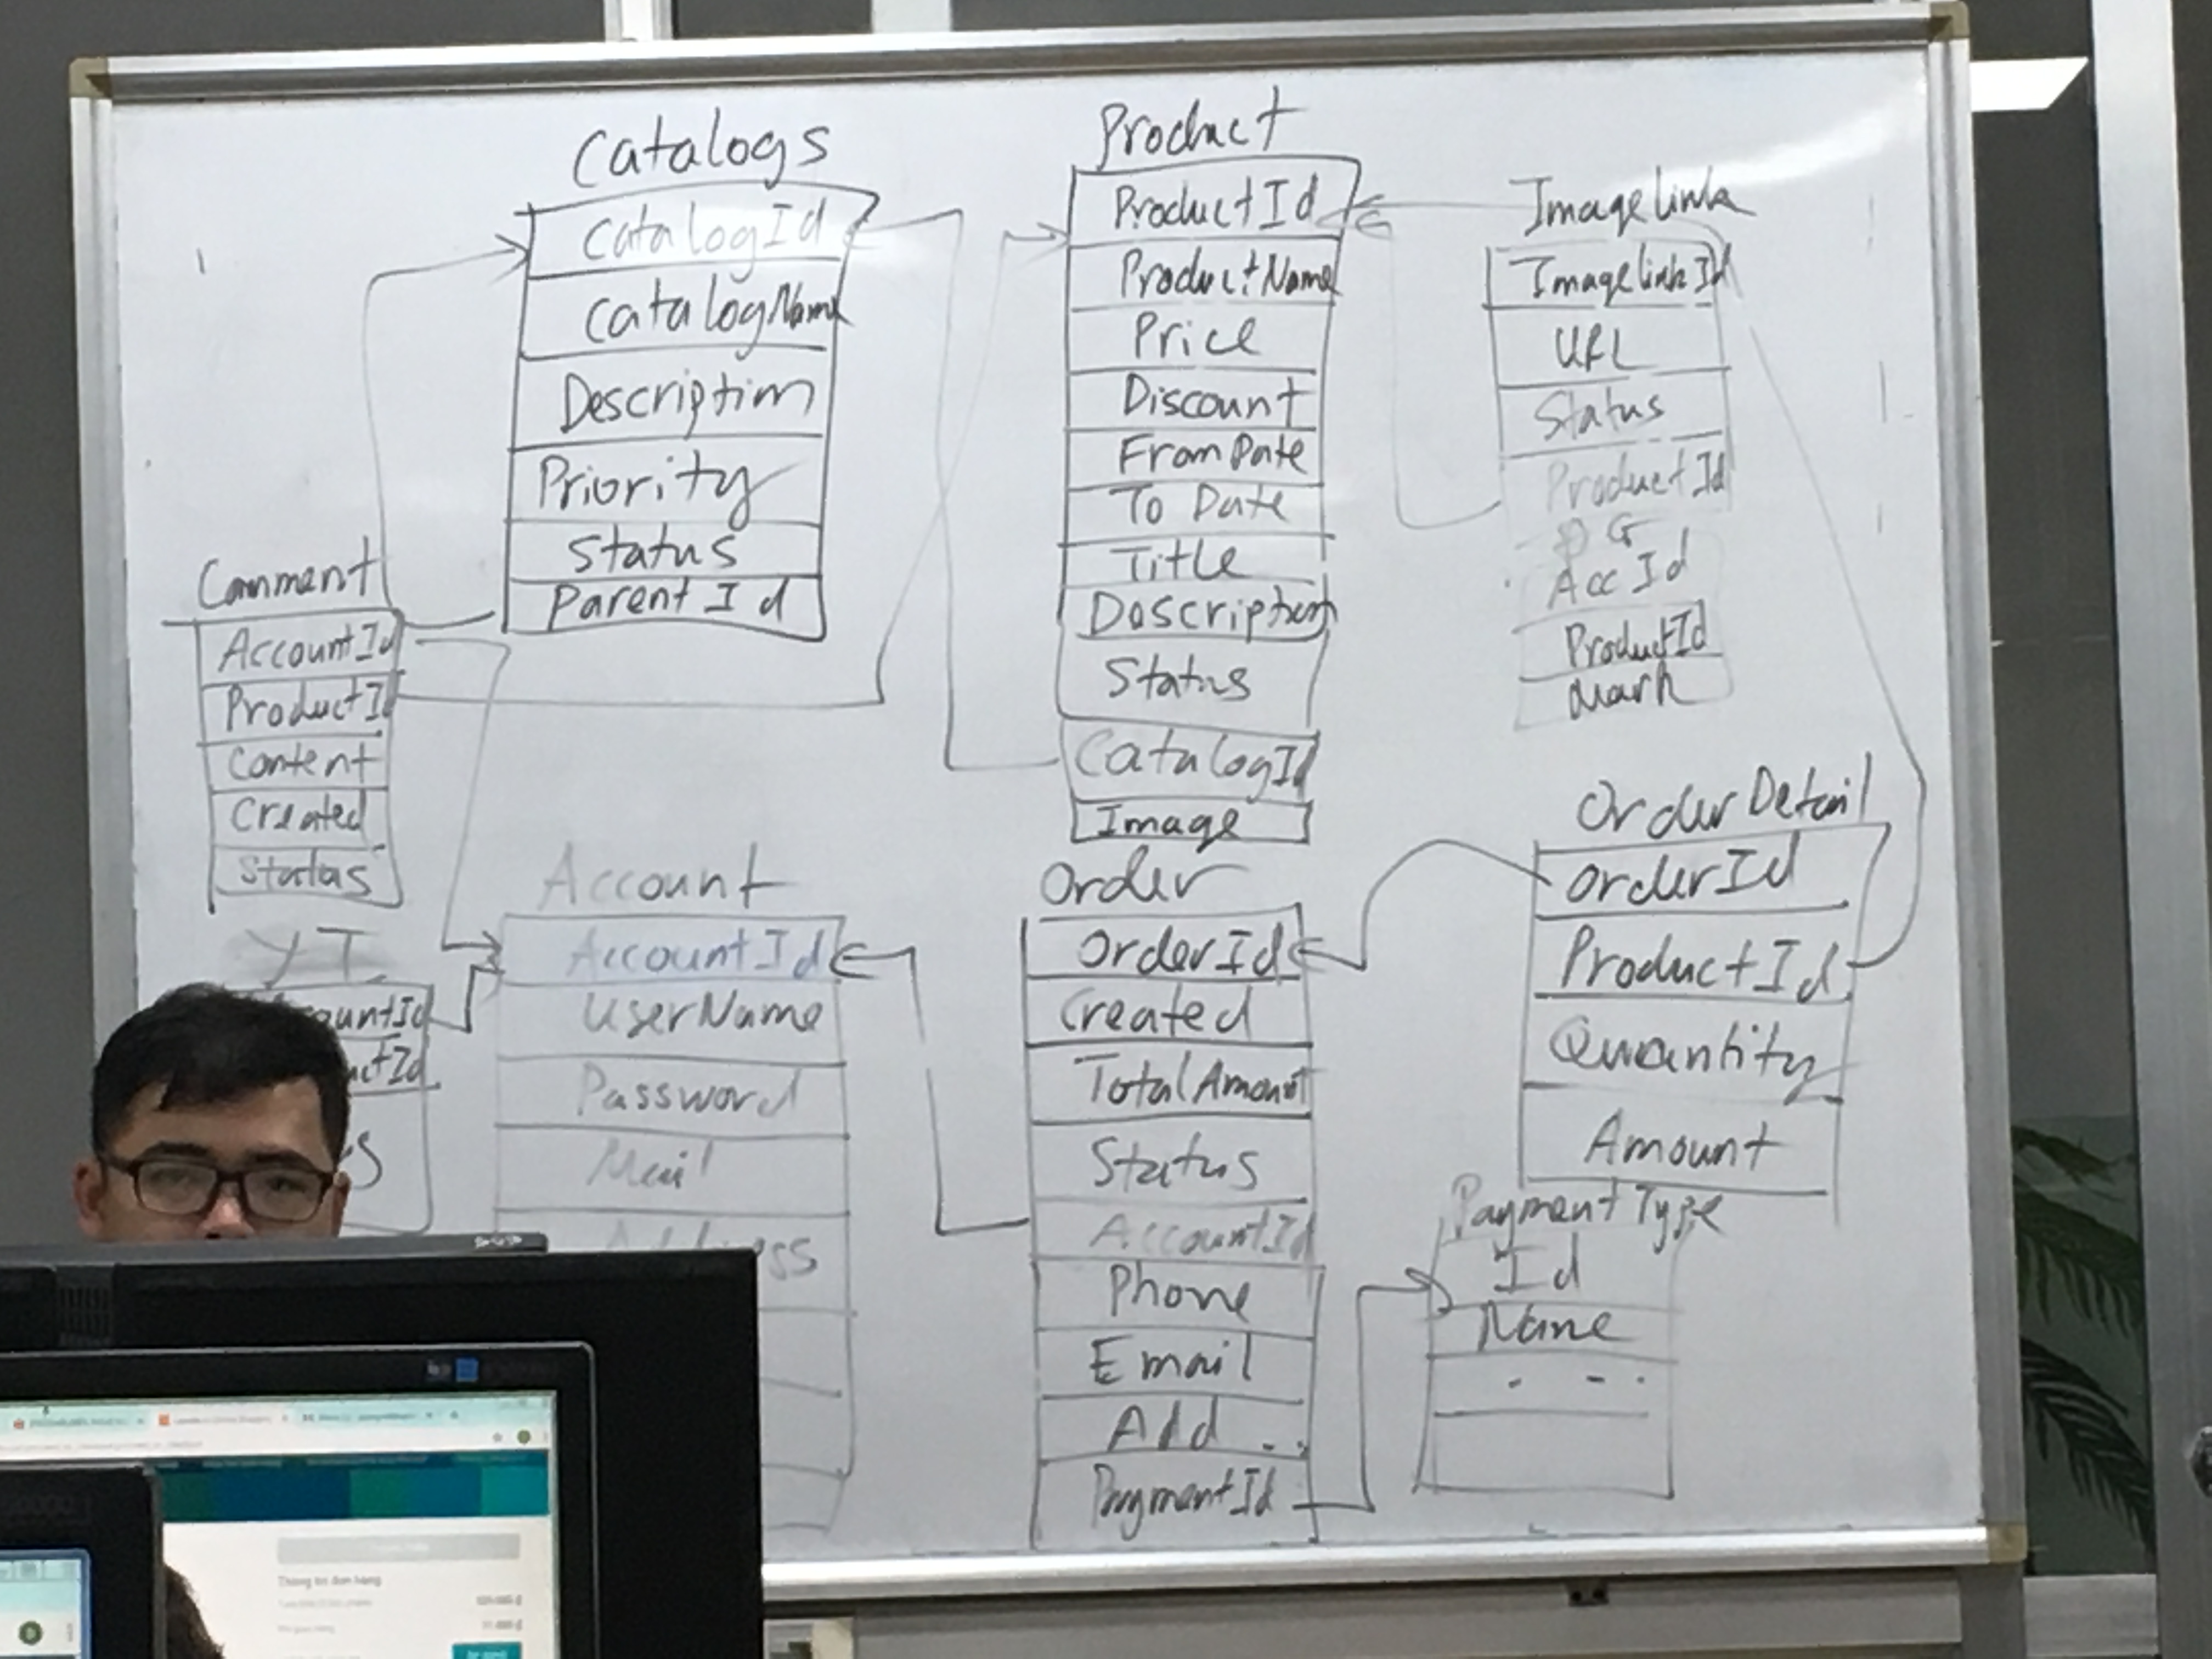 Catalogs
CatalogId
CatalogName
Description
Priority
Status
Parent Id
Product
ProductId
ProductName
Price
Discount
FromDate
To Date
Title
Description
Status
CatalogId
Image
Imagelink
ImagelinkId
URL
Status
ProductId
AccId
ProductId
Mark
Comment
AccountId
ProductId
Content
Created
Status
YT
ountId
uctId
s
Account
AccountId
UserName
Password
Mail
ess
Order
OrderId
Created
TotalAmount
Status
AccountId
Phone
Email
Add ..
PaymentId
OrderDetail
OrderId
ProductId
Quantity
Amount
Payment Type
Id
Name
. - .
Thông tin đơn hàng